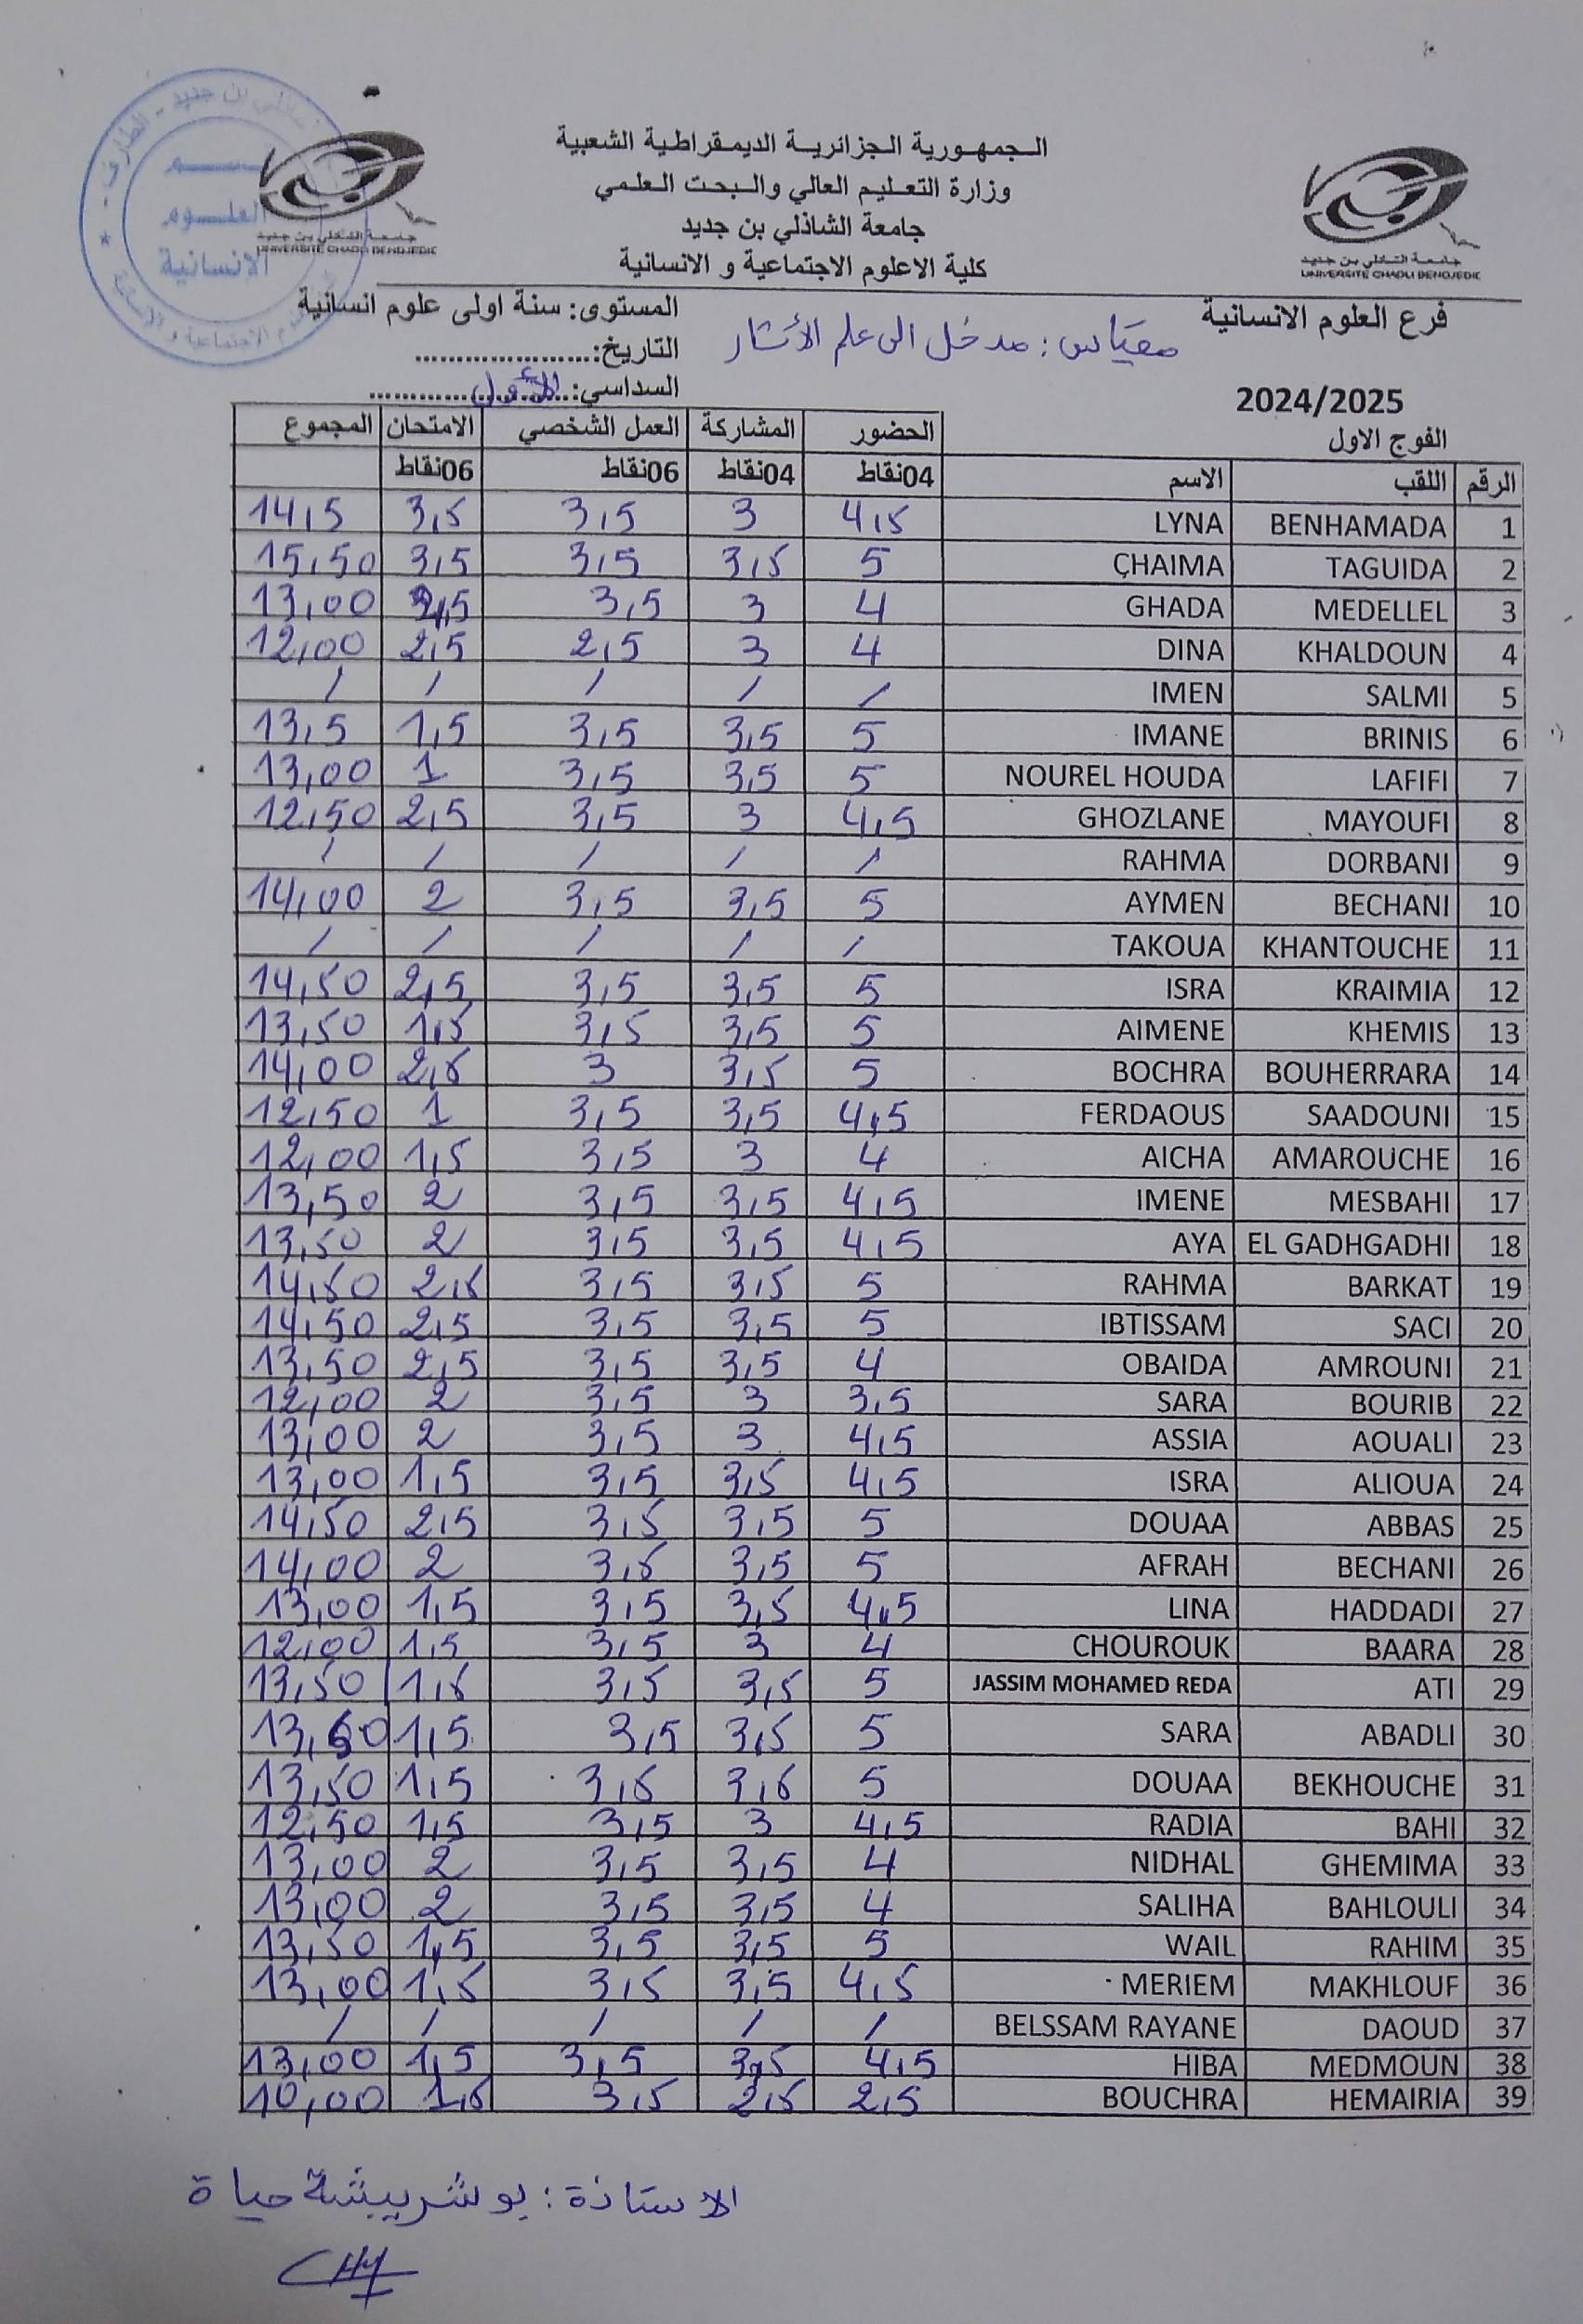 الجمهورية الجزائرية الديمقراطية الشعبية
وزارة التعليم العالي والبحث العلمي
جامعة الشاذلي بن جديد
كلية الاعلوم الاجتماعية و الانسانية
جامعة الشاذلي بن جديد
UNIVERSITE CHADLI BENDJEDID
جامعة الشاذلي بن جديد
UNIVERSITE CHADLI BENDJEDID
قسم
العلوم
الانسانية
فرع العلوم الانسانية
المستوى: سنة اولى علوم انسانية
مقياس: مدخل الى علم الأثار
التاريخ:......................
السداسي: الأول
2024/2025
الفوج الاول
الحضور المشاركة العمل الشخصي الامتحان المجموع
الرقم اللقب الاسم 04نقاط 04نقاط 06نقاط 06نقاط
1 BENHAMADA LYNA 4,5 3 3,5 3,5 14,5
2 TAGUIDA ÇHAIMA 5 3,5 3,5 3,5 15,50
3 MEDELLEL GHADA 4 3 3,5 2,5 13,00
4 KHALDOUN DINA 4 3 2,5 2,5 12,00
5 SALMI IMEN / / / / /
6 BRINIS IMANE 5 3,5 3,5 1,5 13,5
7 LAFIFI NOUREL HOUDA 5 3,5 3,5 1 13,00
8 MAYOUFI GHOZLANE 4,5 3 3,5 2,5 12,50
9 DORBANI RAHMA / / / / /
10 BECHANI AYMEN 5 3,5 3,5 2 14,00
11 KHANTOUCHE TAKOUA / / / / /
12 KRAIMIA ISRA 5 3,5 3,5 2,5 14,50
13 KHEMIS AIMENE 5 3,5 3,5 1,5 13,50
14 BOUHERRARA BOCHRA 5 3,5 3 2,5 14,00
15 SAADOUNI FERDAOUS 4,5 3,5 3,5 1 12,50
16 AMAROUCHE AICHA 4 3 3,5 1,5 12,00
17 MESBAHI IMENE 4,5 3,5 3,5 2 13,50
18 EL GADHGADHI AYA 4,5 3,5 3,5 2 13,50
19 BARKAT RAHMA 5 3,5 3,5 2,5 14,50
20 SACI IBTISSAM 5 3,5 3,5 2,5 14,50
21 AMROUNI OBAIDA 4 3,5 3,5 2,5 13,50
22 BOURIB SARA 3,5 3 3,5 2 12,00
23 AOUALI ASSIA 4,5 3 3,5 2 13,00
24 ALIOUA ISRA 4,5 3,5 3,5 1,5 13,00
25 ABBAS DOUAA 5 3,5 3,5 2,5 14,50
26 BECHANI AFRAH 5 3,5 3,5 2 14,00
27 HADDADI LINA 4,5 3,5 3,5 1,5 13,00
28 BAARA CHOUROUK 4 3 3,5 1,5 12,00
29 ATI JASSIM MOHAMED REDA 5 3,5 3,5 1,5 13,50
30 ABADLI SARA 5 3,5 3,5 1,5 13,50
31 BEKHOUCHE DOUAA 5 3,5 3,5 1,5 13,50
32 BAHI RADIA 4,5 3 3,5 1,5 12,50
33 GHEMIMA NIDHAL 4 3,5 3,5 2 13,00
34 BAHLOULI SALIHA 4 3,5 3,5 2 13,00
35 RAHIM WAIL 5 3,5 3,5 1,5 13,50
36 MAKHLOUF MERIEM 4,5 3,5 3,5 1,5 13,00
37 DAOUD BELSSAM RAYANE / / / / /
38 MEDMOUN HIBA 4,5 3,5 3,5 1,5 13,00
39 HEMAIRIA BOUCHRA 2,5 2,5 3,5 1,5 10,00
الاستاذة: بوشريبشة حياة